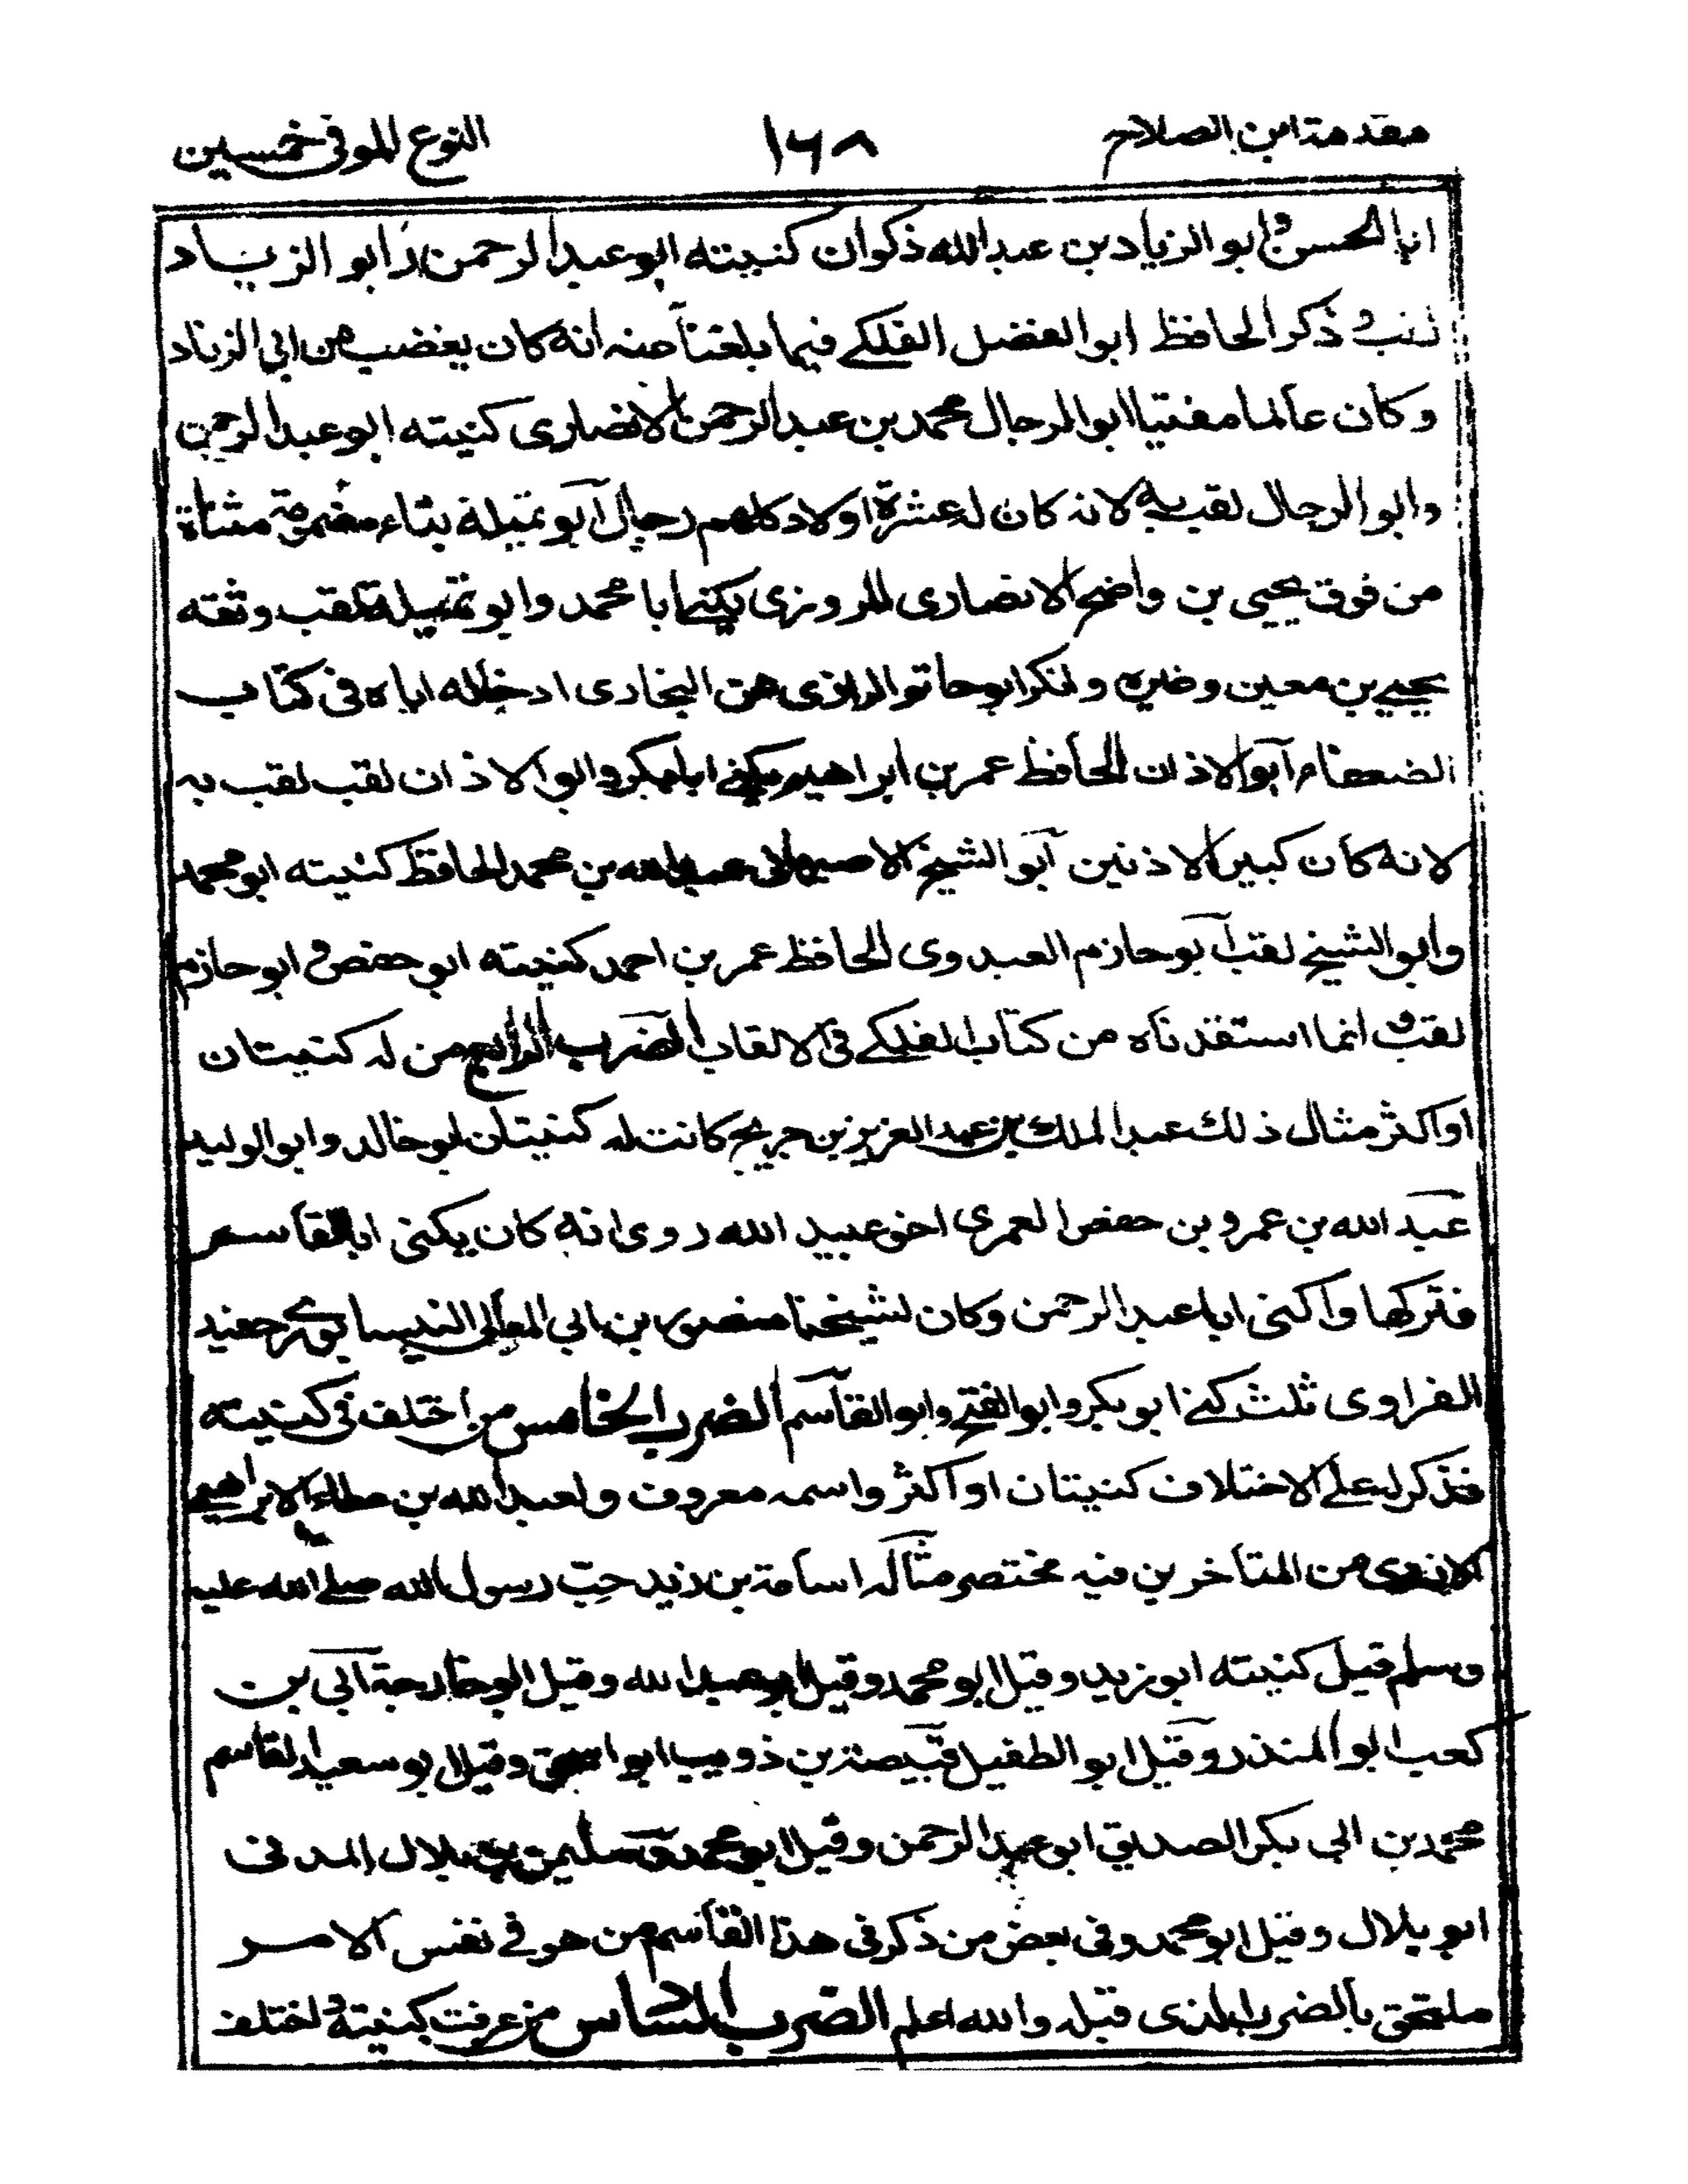 مقدمة ابن الصلاح ١٦٨ النوع الموفى خمسين
ابا الحسن وابو الزناد بن عبد الله ذكوان كنيته ابو عبد الرحمن وابو الزنـاد
لقب وذكر الحافظ ابو الفضل الفلكے فيما بلغنا عنه انه كان يغضب من ابي الزناد
وكان عالما مفتيا ابو الرجال محمد بن عبد الرحمن الانصاری كنيته ابو عبد الرحمن
وابو الرجال لقب به لانه كان له عشرة اولاد كلهم رجال ابو تميلة بتاء مضمومة مثناة
من فوق يحيی بن واضح الانصاری المروزی يكنے ابا محمد وابو تميلة لقب وثقه
يحيے بن معين وغيره وانكر ابو حاتم الرازی علی البخاری ادخاله اياه فی كتاب
الضعفاء آبو الاذان الحافظ عمر بن ابراهيم يكنے ابا بكر وابو الاذان لقب لقب به
لانه كان كبير الاذنين آبو الشيخ الاصبهانی عبد الله بن محمد الحافظ كنيته ابو محمد
وابو الشيخ لقب آبو حازم العبدوی الحافظ عمر بن احمد كنيته ابو حفص وابو حازم
لقب وانما استفدناه من كتاب الفلكے فی الالقاب الضرب الرابع من له كنيتان
او اكثر مثال ذلك عبد الملك بن عبد العزيز بن جريج كانت له كنيتان ابو خالد وابو الوليد
عبد الله بن عمرو بن حفص العمری اخو عبيد الله روی انه كان يكنی ابا القاسم
فتركها واكنی ابا عبد الرحمن وكان لشيخنا منصور بن ابي المعالی النيسابوری حفيد
الفراوی ثلث كنے ابو بكر وابو الفتح وابو القاسم الضرب الخامس من اختلف فی كنيته
فذكر له علے الاختلاف كنيتان او اكثر واسمه معروف ولعبد الله بن عطاء الابراهيمی
من المتأخرين فيه مختصر مثاله اسامة بن زيد حِبّ رسول الله صلے الله عليه
وسلم قيل كنيته ابو زيد وقيل ابو محمد وقيل ابو عبد الله وقيل ابو خارجة آبی بن
كعب ابو المنذر وقيل ابو الطفيل قبيصة بن ذويب ابو اسحق وقيل ابو سعيد القاسم
محمد بن ابی بكر الصديق ابو عبد الرحمن وقيل ابو محمد سليمن بن بلال المدنی
ابو بلال وقيل ابو محمد وفی بعض من ذكر فی هذا القاسم من هو فے نفس الامر
ملتحق بالضرب الذی قبله والله اعلم الضرب السادس من عرفت كنيته واختلف